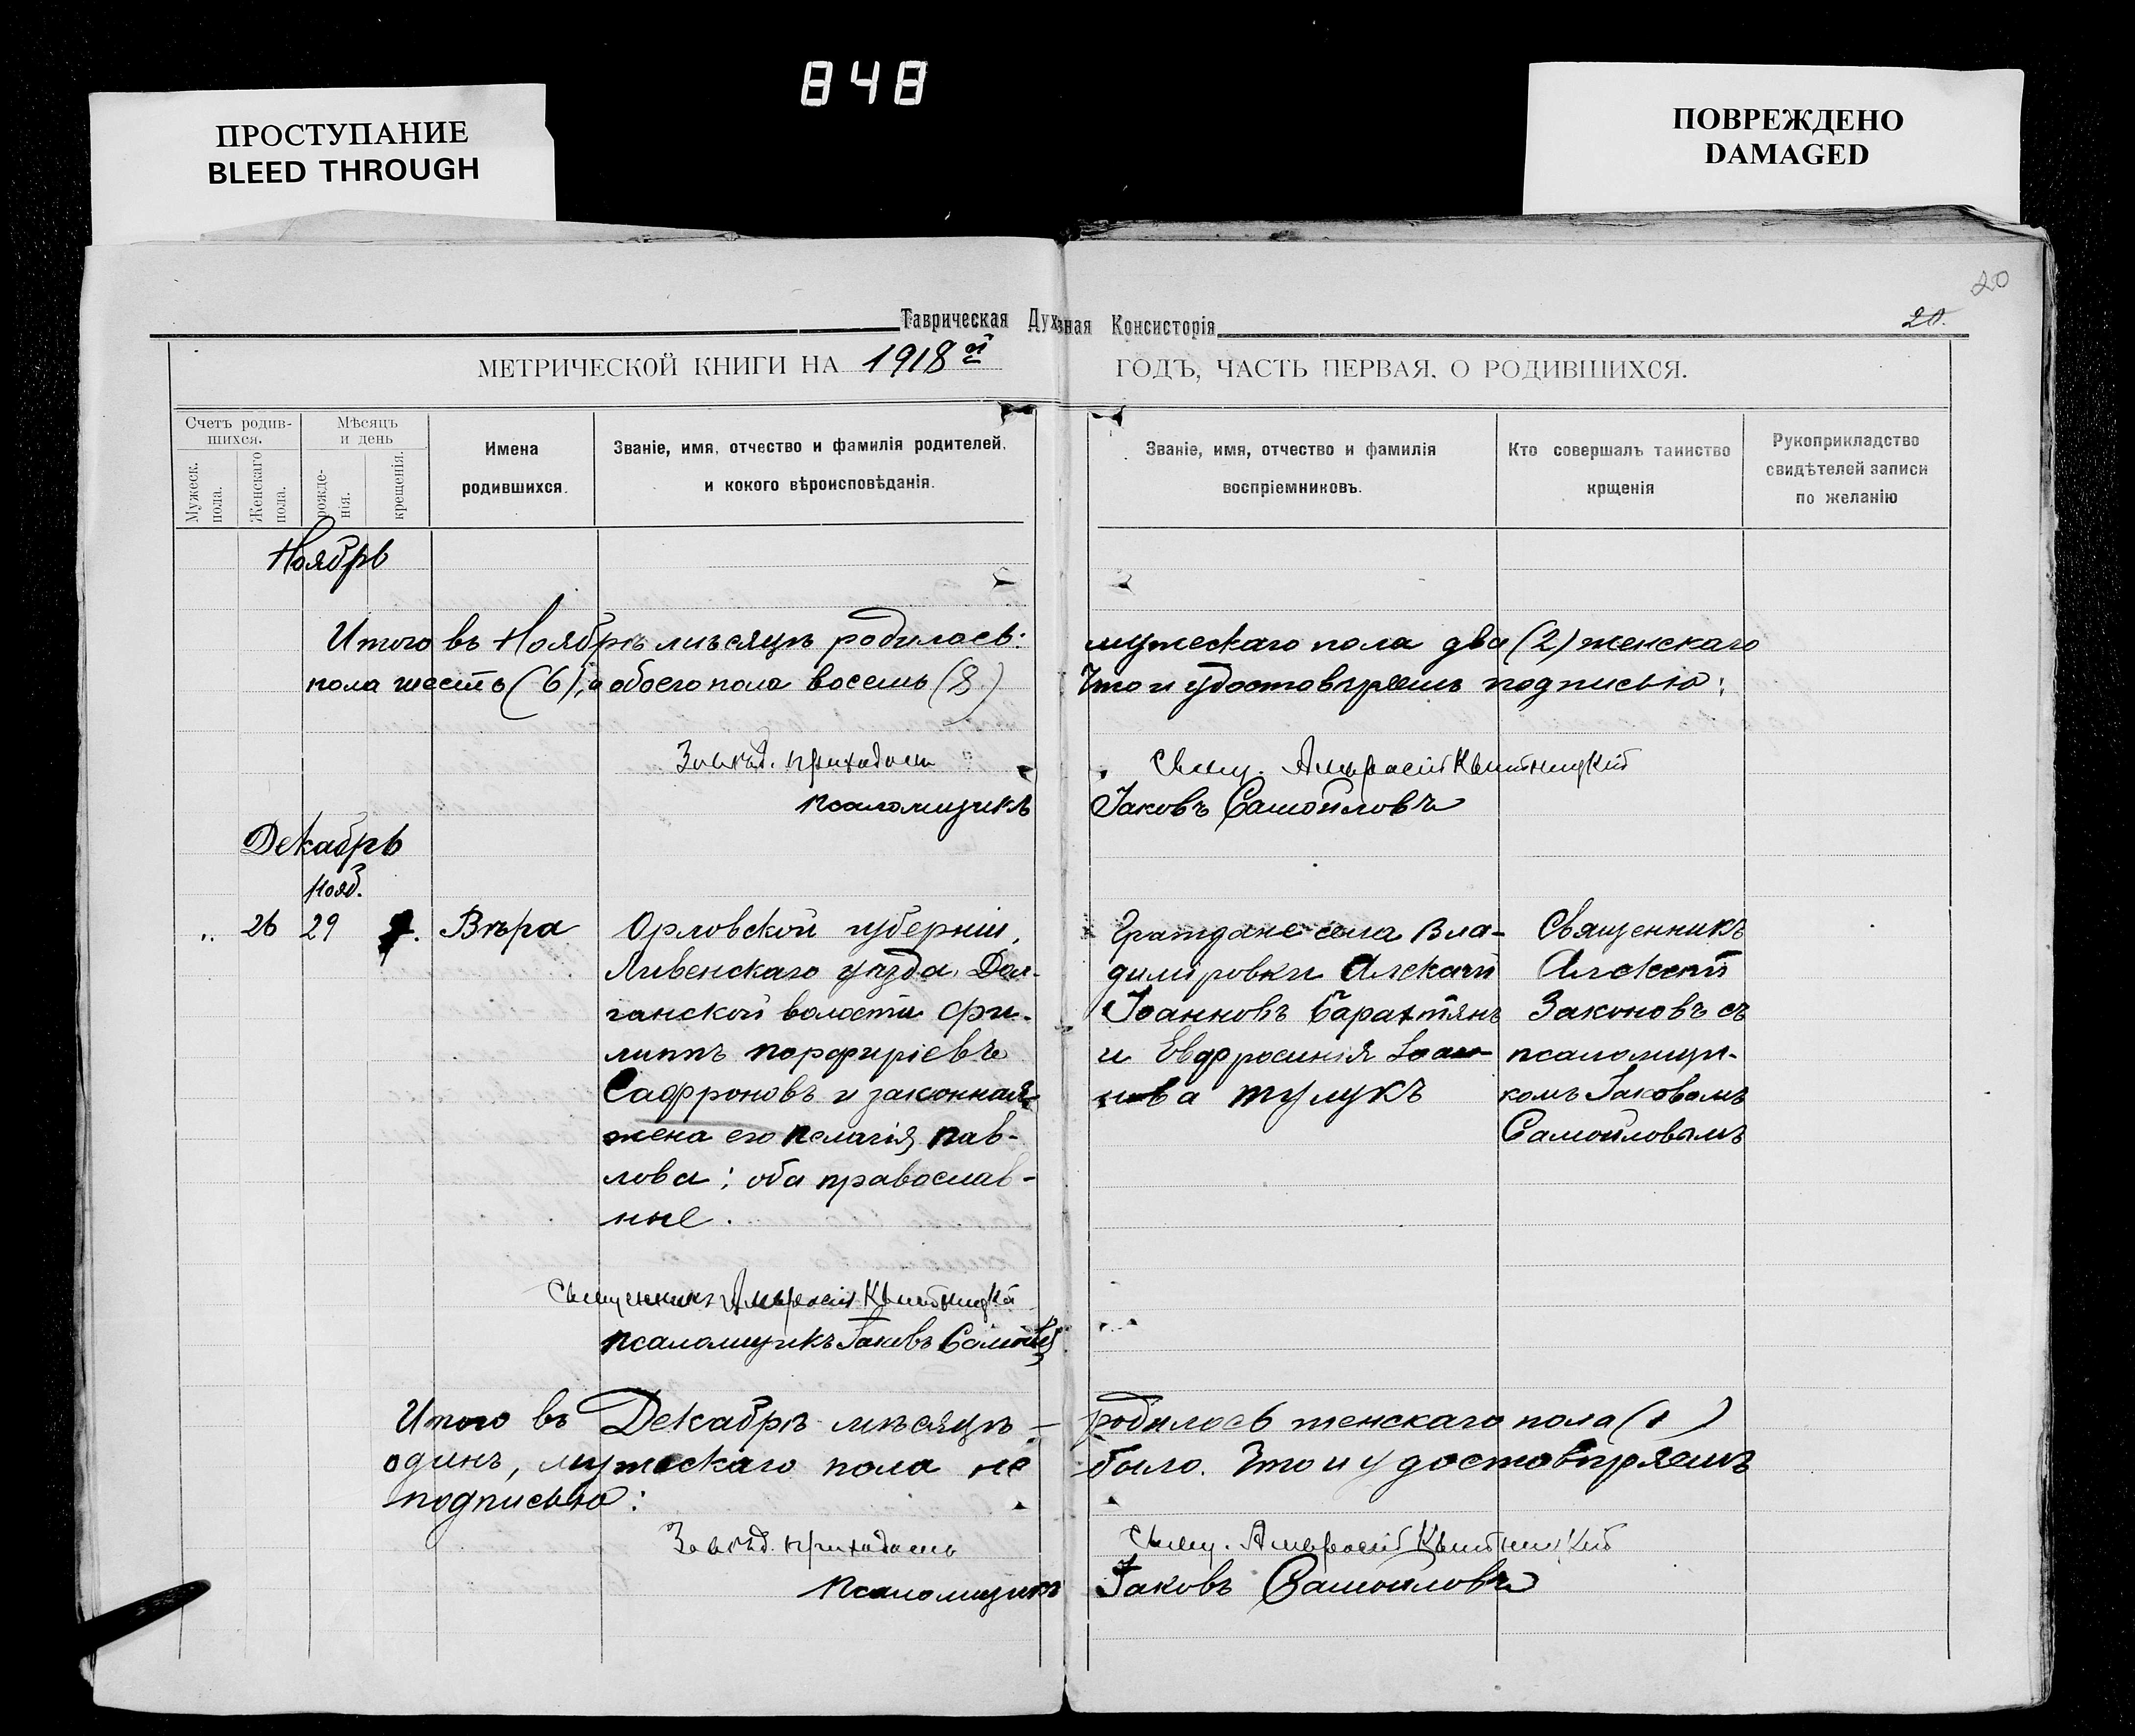 848
ПРОСТУПАНИЕ
BLEED THROUGH
ПОВРЕЖДЕНО
DAMAGED
20
Таврическая Духвная Консисторія
20.
МЕТРИЧЕСКОЙ КНИГИ НА 1918й ГОДЪ, ЧАСТЬ ПЕРВАЯ, О РОДИВШИХСЯ.
Счетъ родив-
шихся.
Мужеск.
пола.
Женскаго
пола.
Мѣсяцъ
и день
рожде-
нія.
крещенія.
Имена
родившихся.
Званіе, имя, отчество и фамилія родителей,
и кокого вѣроисповѣданія.
Званіе, имя, отчество и фамилія
воспріемниковъ.
Кто совершалъ таинство
крщенія
Рукоприкладство
свидѣтелей записи
по желанію
Ноябрь
Итого въ Ноябрѣ мѣсяцѣ родилось: мужескаго пола два (2) женскаго
пола шесть (6), а обоего пола восемь (8) Что и удостовѣряемъ подписью:
Завѣд. приходомъ Свящ. Амвросій Квитницкій
Псаломщикъ Іаковъ Самойловъ
Декабрь
Нояб.
„ 26 29 7. Вѣра
Орловской губерніи,
Ливенскаго уѣзда, Дол-
ганской волости Фи-
липпъ Порфиріевъ
Сафроновъ и законная
жена его Пелагія Пав-
лова; оба православ-
ные.
Граждане села Вла-
диміровки Алексѣй
Іоанновъ Барахтянъ
и Евфросинія Іоан-
нова Тулукъ
Священникъ
Алексѣй
Законовъ съ
псаломщи-
комъ Іаковомъ
Самойловымъ
Священникъ Амвросій Квитницкій
Псаломщикъ Іаковъ Самойловъ
Итого въ Декабрѣ мѣсяцѣ – родилось женскаго пола (1)
одинъ, мужескаго пола не было. Что и удостовѣряемъ
подписью:
Завѣд. приходомъ Свящ. Амвросій Квитницкій
Псаломщикъ Іаковъ Самойловъ